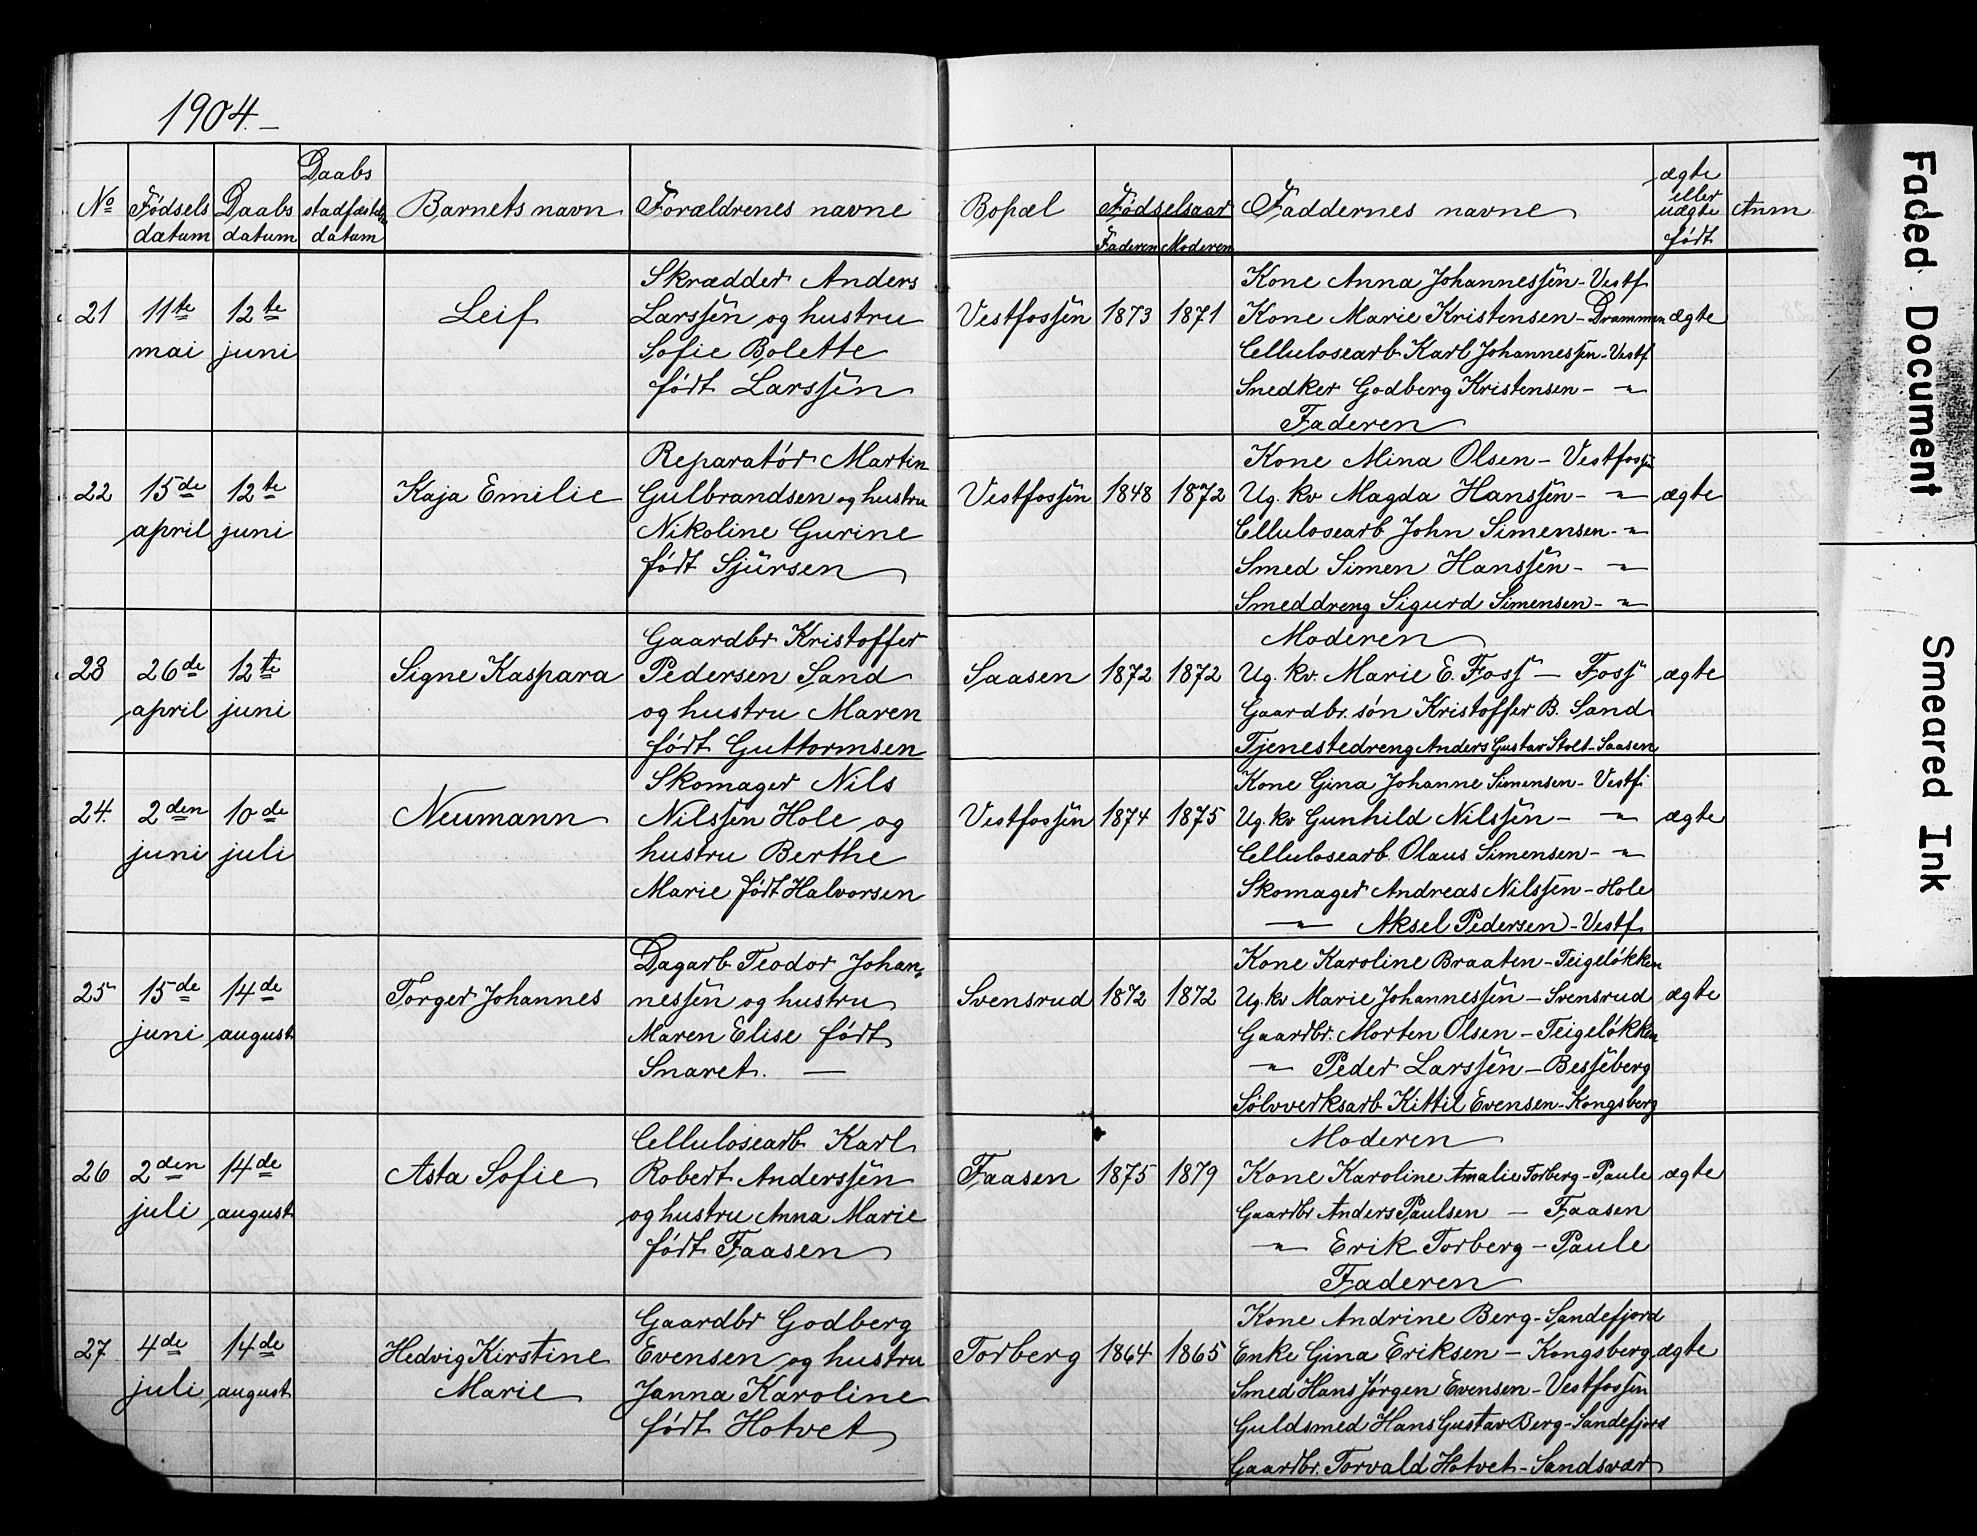 1904.
No
Fødsels
datum
Daabs
datum
Daabs
stadfæstelses
datum
Barnets navn
Forældrenes navne
Bopæl
Fødselsaar
Faderen Moderen
Faddernes navne
ægte
eller
uægte
født
Anm
21
11te
mai
12te
juni
Leif
Skrædder Anders
Larssen og hustru
Sofie Bolette
født Larssen
Vestfossen
1873
1871
Kone Anna Johannessen - Vestf.
Kone Marie Kristensen - Drammen
Cellulosearb. Karl Johannessen - Vestf.
Snedker Godberg Kristensen - "
Faderen
ægte
22
15de
april
12te
juni
Kaja Emilie
Reparatør Martin
Gulbrandsen og hustru
Nikoline Gurine
født Sjursen
Vestfossen
1848
1872
Kone Mina Olsen - Vestfossen
Ug. kv Magda Hanssen - "
Cellulosearb John Simensen - "
Smed Simen Hanssen - "
Smeddreng Sigurd Simensen - "
ægte
23
26de
april
12te
juni
Signe Kaspara
Gaardbr Kristoffer
Pedersen Sand
og hustru Maren
født Guttormsen
Saasen
1872
1872
Moderen
Ug. kv. Marie E. Foss - Foss
Gaardbr. søn Kristoffer B. Sand
Tjenestedreng Anders Gustav Stolt - Saasen
ægte
24.
2den
juni
10de
juli
Neumann
Skomager Nils
Nilssen Hole og
hustru Berthe
Marie født Halvorsen
Vestfossen
1874
1875
Kone Gina Johanne Simensen - Vestf.
Ug. kv Gunhild Nilssen - "
Cellulosearb. Olaus Simensen - "
Skomager Andreas Nilssen - Hole
" Aksel Pedersen - Vestf.
ægte
25
15de
juni
14de
august
Torger Johannes
Dagarb Teodor Johan-
nessen og hustru
Maren Elise født
Snaret. —
Svensrud
1872
1872
Kone Karoline Braaten - Teigeløkken
Ug. kv Marie Johannessen - Svensrud
Gaardbr. Morten Olsen - Teigeløkken
" Peder Larssen - Besseberg
Sølvverksarb Kittil Evensen - Kongsberg
ægte
26
2den
juli
14de
august
Asta Sofie
Cellulosearb Karl
Robert Anderssen
og hustru Anna Marie
født Faasen
Faasen
1875
1879
Moderen
Kone Karoline Amalie Torberg - Paule
Gaardbr Anders Paulsen - Faasen
" Erik Torberg - Paule
Faderen
ægte
27
4de
juli
14de
august
Hedvig Kirstine
Marie
Gaardbr Godberg
Evensen og hustru
Janna Karoline
født Hotvet
Torberg
1864
1865
Kone Andrine Berg - Sandefjord
Enke Gina Eriksen - Kongsberg
Smed Hans Jørgen Evensen - Vestfossen
Guldsmed Hans Gustav Berg - Sandefjord
Gaardbr. Torvald Hotvet - Sandsvær
ægte
Faded Document
Smeared Ink